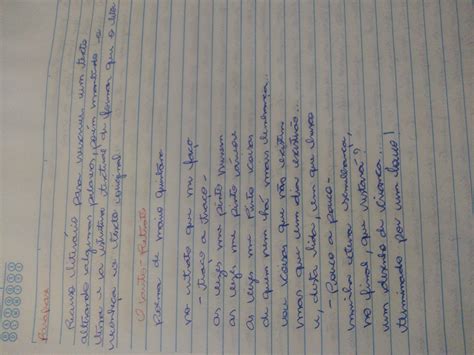 Paráfrase
Recurso literário para reescrever um texto
alterando algumas palavras, porém mantendo o
tema e a estrutura textual de forma que o leitor
reconheça no texto original.
O auto-retrato
Poema de Mario Quintana
no retrato que me faço
- traço a traço -
às vezes me pinto nuvem
às vezes me pinto árvore
às vezes me pinto coisas
de que nem há mais lembrança...
ou coisas que não existem
mas que um dia existirão...
e, desta lida, em que busco
- pouco a pouco -
minha eterna semelhança,
no final, que restará?
um desenho de criança...
terminado por um louco!